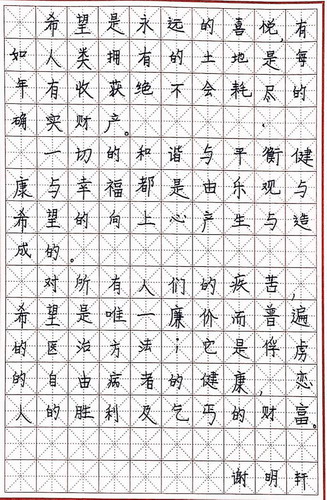 希望是永远的喜悦,有
如人类拥有的土地是每
年有收获绝不会耗尽的
确实财产。
一切的和谐与平衡健
康与幸福都是由乐观与
希望的向上心产生与造
成的。
对所有人们的疾苦,
希望是唯一廉价而普遍
的医治方法;它是俘虏
的自由病者的健康,恋
人的胜利及乞丐的财富。
谢明轩